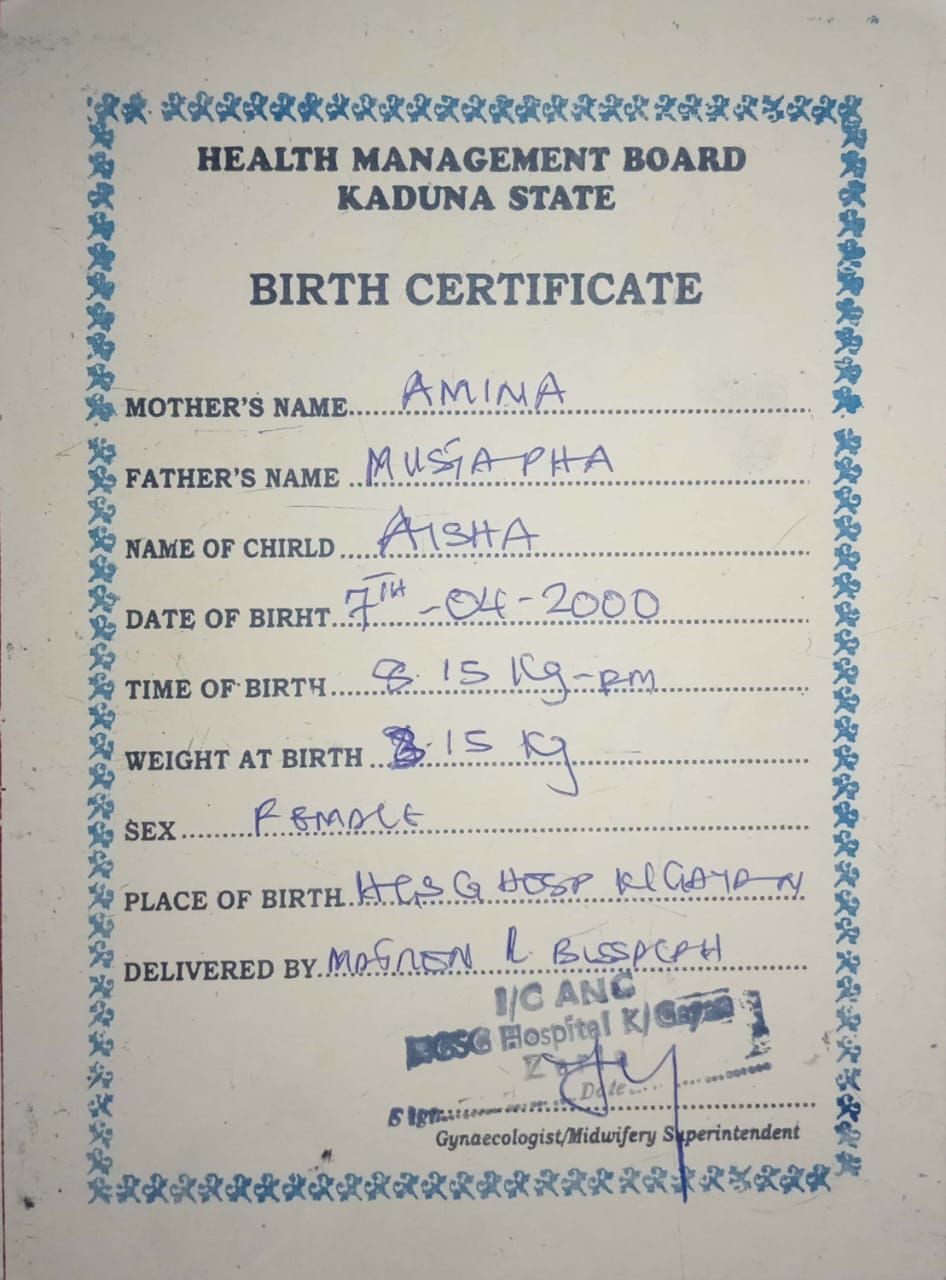 HEALTH MANAGEMENT BOARD
KADUNA STATE
BIRTH CERTIFICATE
MOTHER'S NAME AMINA
FATHER'S NAME MUSTAPHA
NAME OF CHIRLD AISHA
DATE OF BIRHT 7TH -04-2000
TIME OF BIRTH 8.15 Kg-PM
WEIGHT AT BIRTH 8.15 Kg
SEX FEMALE
PLACE OF BIRTH HGSG HOSP K/GAYAN
DELIVERED BY MATRON R
I/C ANC
HGSG Hospital K/Gayan
Sign Date
Gynaecologist/Midwifery Superintendent